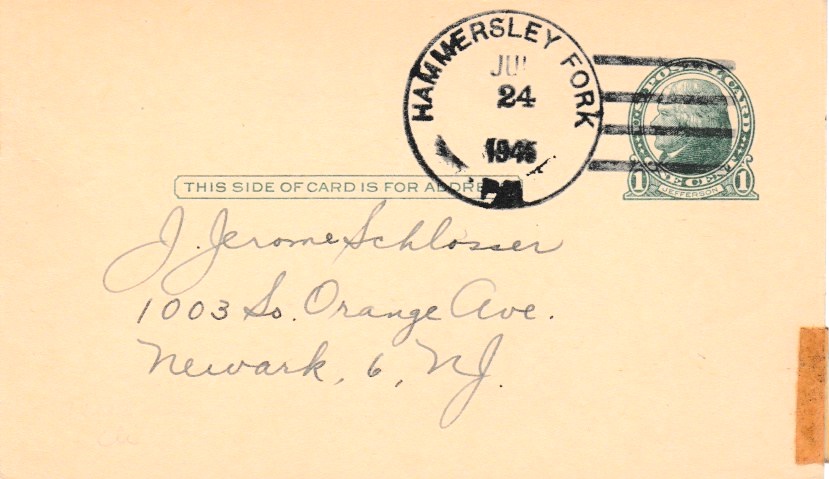 HAMMERSLEY FORK
JUL
24
1946
PM
U.S. POSTAL CARD
ONE CENT
1 JEFFERSON 1
THIS SIDE OF CARD IS FOR ADDRESS
J. Jerome Schlosser
1003 So. Orange Ave.
Newark, 6, NJ.